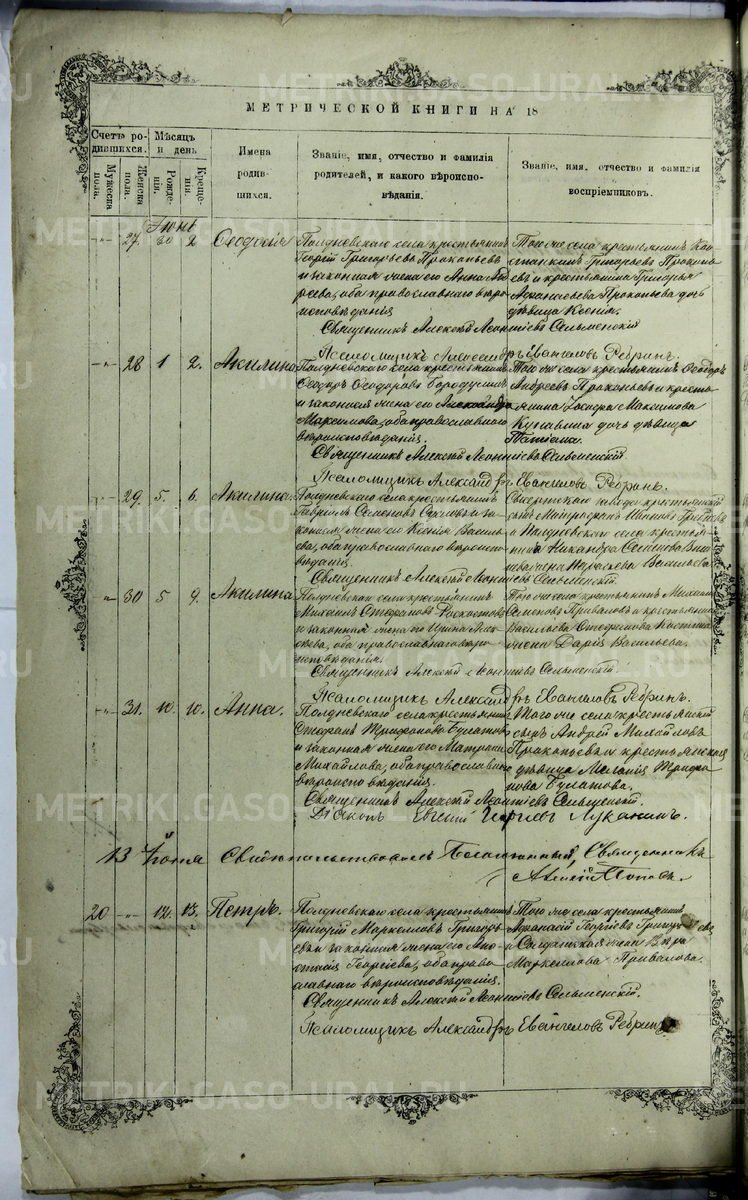 МЕТРИЧЕСКОЙ КНИГИ НА 18
Счетъ родившихся.
Мужеска пола.
Женска пола.
Мѣсяцъ и день
Рожденія.
Крещенія.
Имена родившихся.
Званіе, имя, отчество и фамилія родителей, и какого вѣроисповѣданія.
Званіе, имя, отчество и фамилія воспріемниковъ.
Іюнь
27 30 2 Ѳеодосія
Полдневскаго села крестьянинъ
Георгій Григорьевъ Прокопьевъ
и законная жена его Анна
оба православнаго вѣро
исповѣданія
Того же села крестьянинъ
Григорьевъ Прокопь
евъ и крестьянина Григорья
Аѳанасьева Прокопьева дочь
дѣвица Ксенія.
Священникъ Алексѣй Леонтіевъ Сельменскій
Псаломщикъ Александръ Евангеловъ Ребринъ.
28 1 2. Акилина
Полдневскаго села крестьянинъ
Ѳеодоръ Ѳеодоровъ Бородулинъ
и законная жена его Александра
Максимова, оба православнаго
вѣроисповѣданія.
Того же села крестьянинъ Ѳеодоръ
Андреевъ Прокопьевъ и кресть
янина Максимова
дочь дѣвица
Татіана.
Священникъ Алексѣй Леонтіевъ Сельменскій
Псаломщикъ Александръ Евангеловъ Ребринъ.
29. 5. 6. Акилина
Полдневскаго села крестьянинъ
Гавріилъ Семеновъ и за
конная жена его Ксенія Василь
ева, оба православнаго вѣроиспо
вѣданія
Сысертскаго завода крестьянскій
сынъ Митрофанъ Ивановъ
и Полдневскаго села кресть
янина Никандра Семенова
жена Параскева Васильева
Священникъ Алексѣй Леонтіевъ Сельменскій.
30 5 9. Акилина
Полдневскаго села крестьянинъ
Михаилъ Стефановъ
и законная жена его Ирина
оба православнаго вѣро
исповѣданія.
Того же села крестьянинъ Михаилъ
Семеновъ Приваловъ и крестьянина
Василья Стефанова Костина
жена Дарія Васильева.
Священникъ Алексѣй Леонтіевъ Сельменскій.
Псаломщикъ Александръ Евангеловъ Ребринъ.
31. 10. 10. Анна.
Полдневскаго села крестьянинъ
Стефанъ Трифоновъ Булатовъ
и законная жена его Матрона
Михайлова, оба православнаго
вѣроисповѣданія.
Того же села крестьянскій
сынъ Андрей Михайловъ
Прокопьевъ и крестьянская
дѣвица Меланія Трифо
нова Булатова.
Священникъ Алексѣй Леонтіевъ Сельменскій.
Діаконъ Евгеній Георгіевъ Луканинъ.
13 Іюня Свидѣтельствовалъ Благочинный, Священникъ
Алексій Поповъ.
20 12. 13. Петръ.
Полдневскаго села крестьянинъ
Григорій Маркелловъ Григорь
евъ и законная жена его Ана
стасія Георгіева, оба право
славнаго вѣроисповѣданія.
Того же села крестьянинъ
Аѳанасій Георгіевъ Григорьевъ
и Солдатская жена Вѣра
Маркеллова Привалова.
Священникъ Алексѣй Леонтіевъ Сельменскій.
Псаломщикъ Александръ Евангеловъ Ребринъ
METRIKI.GASO-URAL.RU